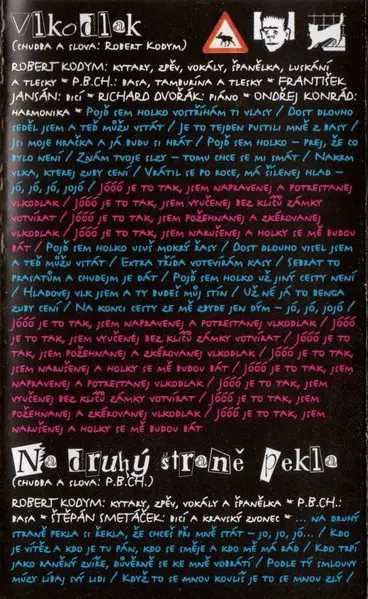 Vlkodlak
(CHUDBA A SLOVA: ROBERT KODYM)
ROBERT KODYM: KYTARY, ZPĚV, VOKÁLY, ŠPANĚLKA, LUSKÁNÍ
A TLESKY * P.B.CH.: BASA, TAMBURÍNA A TLESKY * FRANTIŠEK
JANSÁN: BICÍ * RICHARD DVOŘÁK: PIÁNO * ONDŘEJ KONRÁD:
HARMONIKA * POJĎ SEM HOLKO VOSTŘÍHÁM TI VLASY / DOST DLOUHO
SEDĚL JSEM A TEĎ MŮŽU VSTÁT / JE TO TEJDEN PUSTILI MNĚ Z BASY /
JSI MOJE HRAČKA A JÁ BUDU SI HRÁT / POJĎ SEM HOLKO – PREJ, ŽE CO
BYLO NENÍ / ZNÁM TVOJE SLZY – TOMU CHCE SE MI SMÁT / NAKRM
VLKA, KTEREJ ZUBY CENÍ / VRÁTIL SE PO ROCE, MÁ ŠÍLENEJ HLAD –
JÓ, JÓ, JÓ, JOJÓ / JÓÓÓ JE TO TAK, JSEM NAPRAVENEJ A POTRESTANEJ
VLKODLAK / JÓÓÓ JE TO TAK, JSEM VYUČENEJ BEZ KLÍČŮ ZÁMKY
VOTVÍRAT / JÓÓÓ JE TO TAK, JSEM POŽEHNANEJ A ZKÉROVANEJ
VLKODLAK / JÓÓÓ JE TO TAK, JSEM NARUŠENEJ A HOLKY SE MĚ BUDOU
BÁT * POJĎ SEM HOLKO USUŠ MOKRÝ ŘASY / DOST DLOUHO VISEL JSEM
A TEĎ MŮŽU VSTÁT / EXTRA TŘÍDA VOTEVÍRÁM KASY / SEBRAT TO
PRASATŮM A CHUDEJM JE DÁT / POJĎ SEM HOLKO UŽ JINÝ CESTY NENÍ
/ HLADOVEJ VLK JSEM A TY BUDEŠ MŮJ STÍN / UŽ NĚ JÁ TO BENGA
ZUBY CENÍ / NA KONCI CESTY ZE MĚ ZBYDE JEN DÝM – JÓ, JÓ, JOJÓ /
JÓÓÓ JE TO TAK, JSEM NAPRAVENEJ A POTRESTANEJ VLKODLAK / JÓÓÓ
JE TO TAK, JSEM VYUČENEJ BEZ KLÍČŮ ZÁMKY VOTVÍRAT / JÓÓÓ JE TO
TAK, JSEM POŽEHNANEJ A ZKÉROVANEJ VLKODLAK / JÓÓÓ JE TO TAK,
JSEM NARUŠENEJ A HOLKY SE MĚ BUDOU BÁT / JÓÓÓ JE TO TAK, JSEM
NAPRAVENEJ A POTRESTANEJ VLKODLAK / JÓÓÓ JE TO TAK, JSEM
VYUČENEJ BEZ KLÍČŮ ZÁMKY VOTVÍRAT / JÓÓÓ JE TO TAK, JSEM
POŽEHNANEJ A ZKÉROVANEJ VLKODLAK / JÓÓÓ JE TO TAK, JSEM
NARUŠENEJ A HOLKY SE MĚ BUDOU BÁT
Na druhý straně pekla
(CHUDBA A SLOVA: P.B.CH.)
ROBERT KODYM: KYTARY, ZPĚV, VOKÁLY A ŠPANĚLKA * P.B.CH.:
BASA * ŠTĚPÁN SMETÁČEK: BICÍ A KRAVSKÝ ZVONEC * ... NA DRUHÝ
STRANĚ PEKLA SI ŘEKLA, ŽE CHCEŠ PŘI MNĚ STÁT – JO, JO, JÓ... / KDO
JE VÍTĚZ A KDO JE TU PÁN, KDO SE SMĚJE A KDO MĚ MÁ RÁD / KDO TRPÍ
JAKO RANĚNÝ ZVÍŘE, DŮVĚRNĚ SE KE MNĚ VOBRÁTÍ / PODLE TÝ SMLOUVY
MÚZY LÍBAJ SVÝ LIDI / KDYŽ TO SE MNOU KOULÍŠ JE TO SE MNOU ZLÝ /